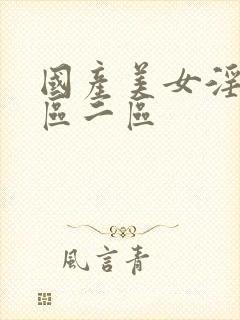 國產美女淫
區二區
風言青